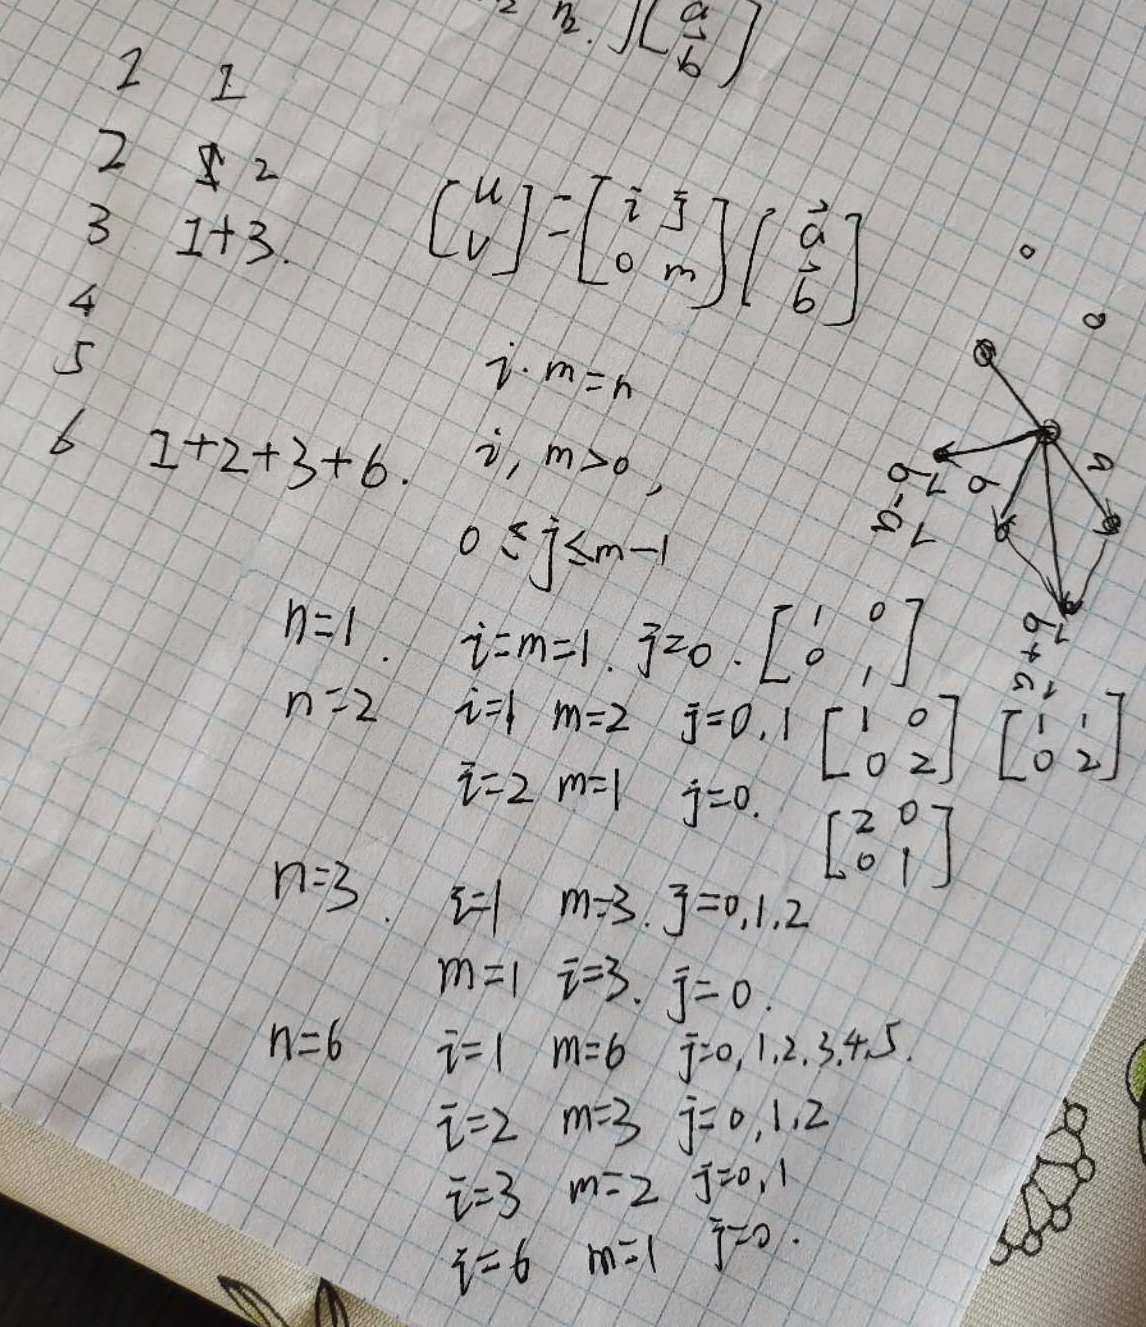 [a⃗
b⃗]
1 1
2 2
3 1+3.
[u
v] = [i j
0 m] [a⃗
b⃗]
4
5
i·m=n
6 1+2+3+6.
i, m>0,
0≤j≤m-1
a
b
b-a
b+a
n=1. i=m=1. j=0. [1 0
0 1]
n=2 i=1 m=2 j=0,1 [1 0
0 2] [1 1
0 2]
i=2 m=1 j=0. [2 0
0 1]
n=3. i=1 m=3. j=0,1,2
m=1 i=3. j=0.
n=6 i=1 m=6 j=0,1,2,3,4,5.
i=2 m=3 j=0,1,2
i=3 m=2 j=0,1
i=6 m=1 j=0.